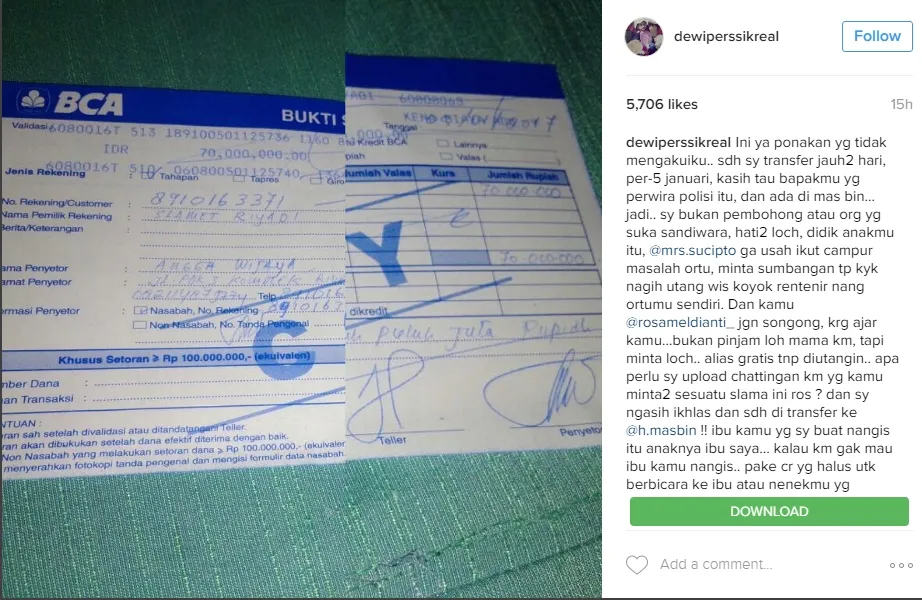 BCA
BUKTI S
Validasi
6080016T 513 189100501125736 1160 8
IDR 70,000,000.00
6080016T 510 060800501125740
Jenis Rekening : Tahapan Tapres Giro
No. Rekening/Customer : 8910163371
Nama Pemilik Rekening : SLAMET RIYADI
Berita/Keterangan
ama Penyetor : ANGGA WIJAYA
amat Penyetor
Telp.
ormasi Penyetor : Nasabah, No. Rekening
Non Nasabah, No. Tanda Pengenal
Khusus Setoran ≥ Rp 100.000.000,- (ekuivalen)
mber Dana :
an Transaksi :
NTUAN :
ran sah setelah divalidasi atau ditandatangani Teller.
ran akan dibukukan setelah dana efektif diterima dengan baik.
Non Nasabah yang melakukan setoran dana ≥ Rp 100.000.000,- (ekuivalen
menyerahkan fotokopi tanda pengenal dan mengisi formulir data nasabah.
C
60808069
Tanggal
tu Kredit BCA
Lainnya
piah
Valas (
Jumlah Valas Kurs Jumlah Rupiah
70 000.000
Y
70.000.000
dikredit
puluh juta Rupiah
Teller
Penyetor
dewiperssikreal
Follow
5,706 likes
15h
dewiperssikreal Ini ya ponakan yg tidak
mengakuiku.. sdh sy transfer jauh2 hari,
per-5 januari, kasih tau bapakmu yg
perwira polisi itu, dan ada di mas bin...
jadi.. sy bukan pembohong atau org yg
suka sandiwara, hati2 loch, didik anakmu
itu, @mrs.sucipto ga usah ikut campur
masalah ortu, minta sumbangan tp kyk
nagih utang wis koyok rentenir nang
ortumu sendiri. Dan kamu
@rosameldianti_ jgn songong, krg ajar
kamu...bukan pinjam loh mama km, tapi
minta loch.. alias gratis tnp diutangin.. apa
perlu sy upload chattingan km yg kamu
minta2 sesuatu slama ini ros ? dan sy
ngasih ikhlas dan sdh di transfer ke
@h.masbin !! ibu kamu yg sy buat nangis
itu anaknya ibu saya... kalau km gak mau
ibu kamu nangis.. pake cr yg halus utk
berbicara ke ibu atau nenekmu yg
DOWNLOAD
Add a comment...